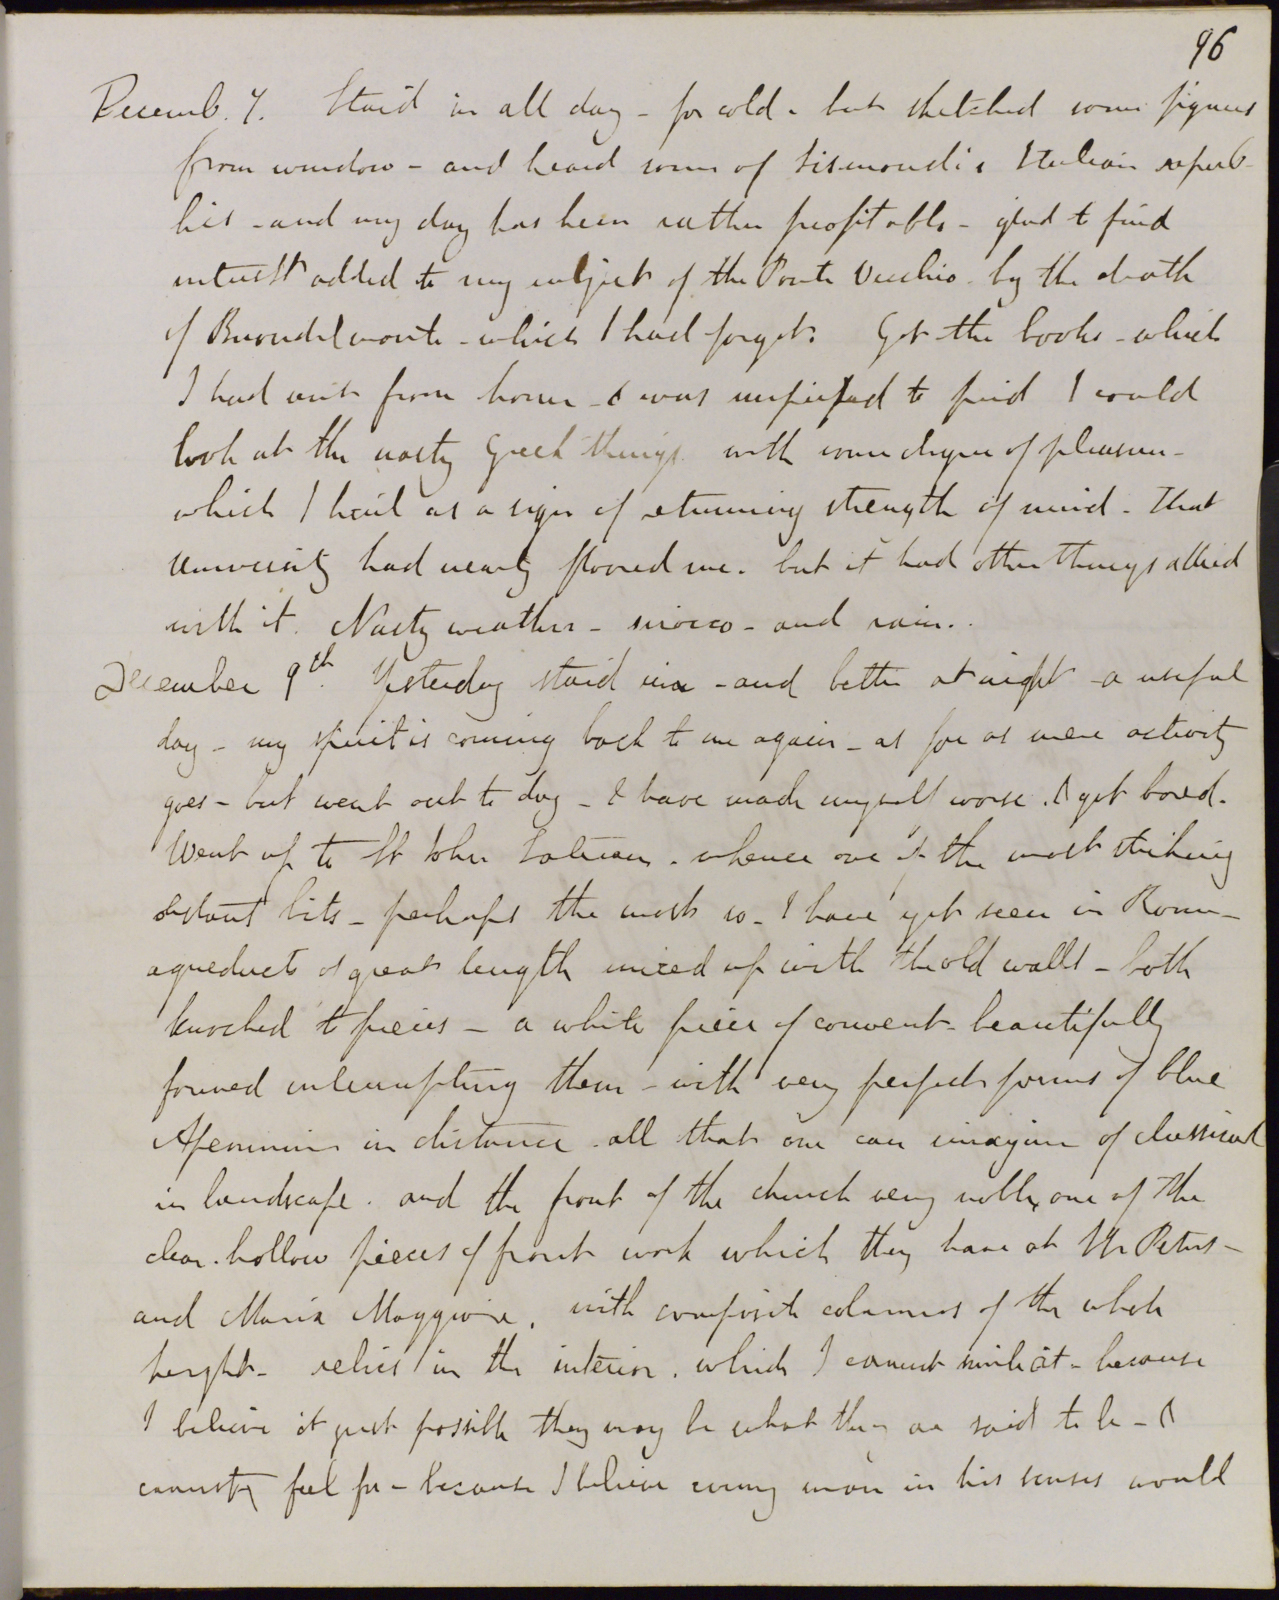 96
Decemb. 7. Staid in all day - for cold - but sketched some figures
from window - and heard some of Sismondi's Italian repub-
lics - and my day has been rather profitable - glad to find
interest added to my subject of the Ponte Vecchio - by the death
of Buondelmonte - which I had forgot. Got the books - which
I had sent from home - & was surprised to find I could
look at the nasty Greek things with some degree of pleasure -
which I hail as a sign of returning strength of mind - That
University had nearly floored me. but it had other things allied
with it. Nasty weather - sirocco - and rain.
December 9th. Yesterday staid in - and better at night - a useful
day - my spirit is coming back to me again - as far as mere activity
goes - but went out to day - & have made myself worse. & got bored.
Went up to St John Lateran - whence one of the most striking
distant bits - perhaps the most so - I have yet seen in Rome -
aqueducts of great length mixed up with the old walls - both
knocked to pieces - a white piece of convent - beautifully
formed interrupting them - with very perfect forms of blue
Apennines in distance - all that one can imagine of classical
in landscape. and the front of the church very noble, one of the
clear hollow pieces of front work which they have at St Peters -
and Maria Maggiore, with composite columns of the whole
height - relics in the interior, which I cannot smile at - because
I believe it just possible they may be what they are said to be - &
feel for - because I believe every man in his senses would